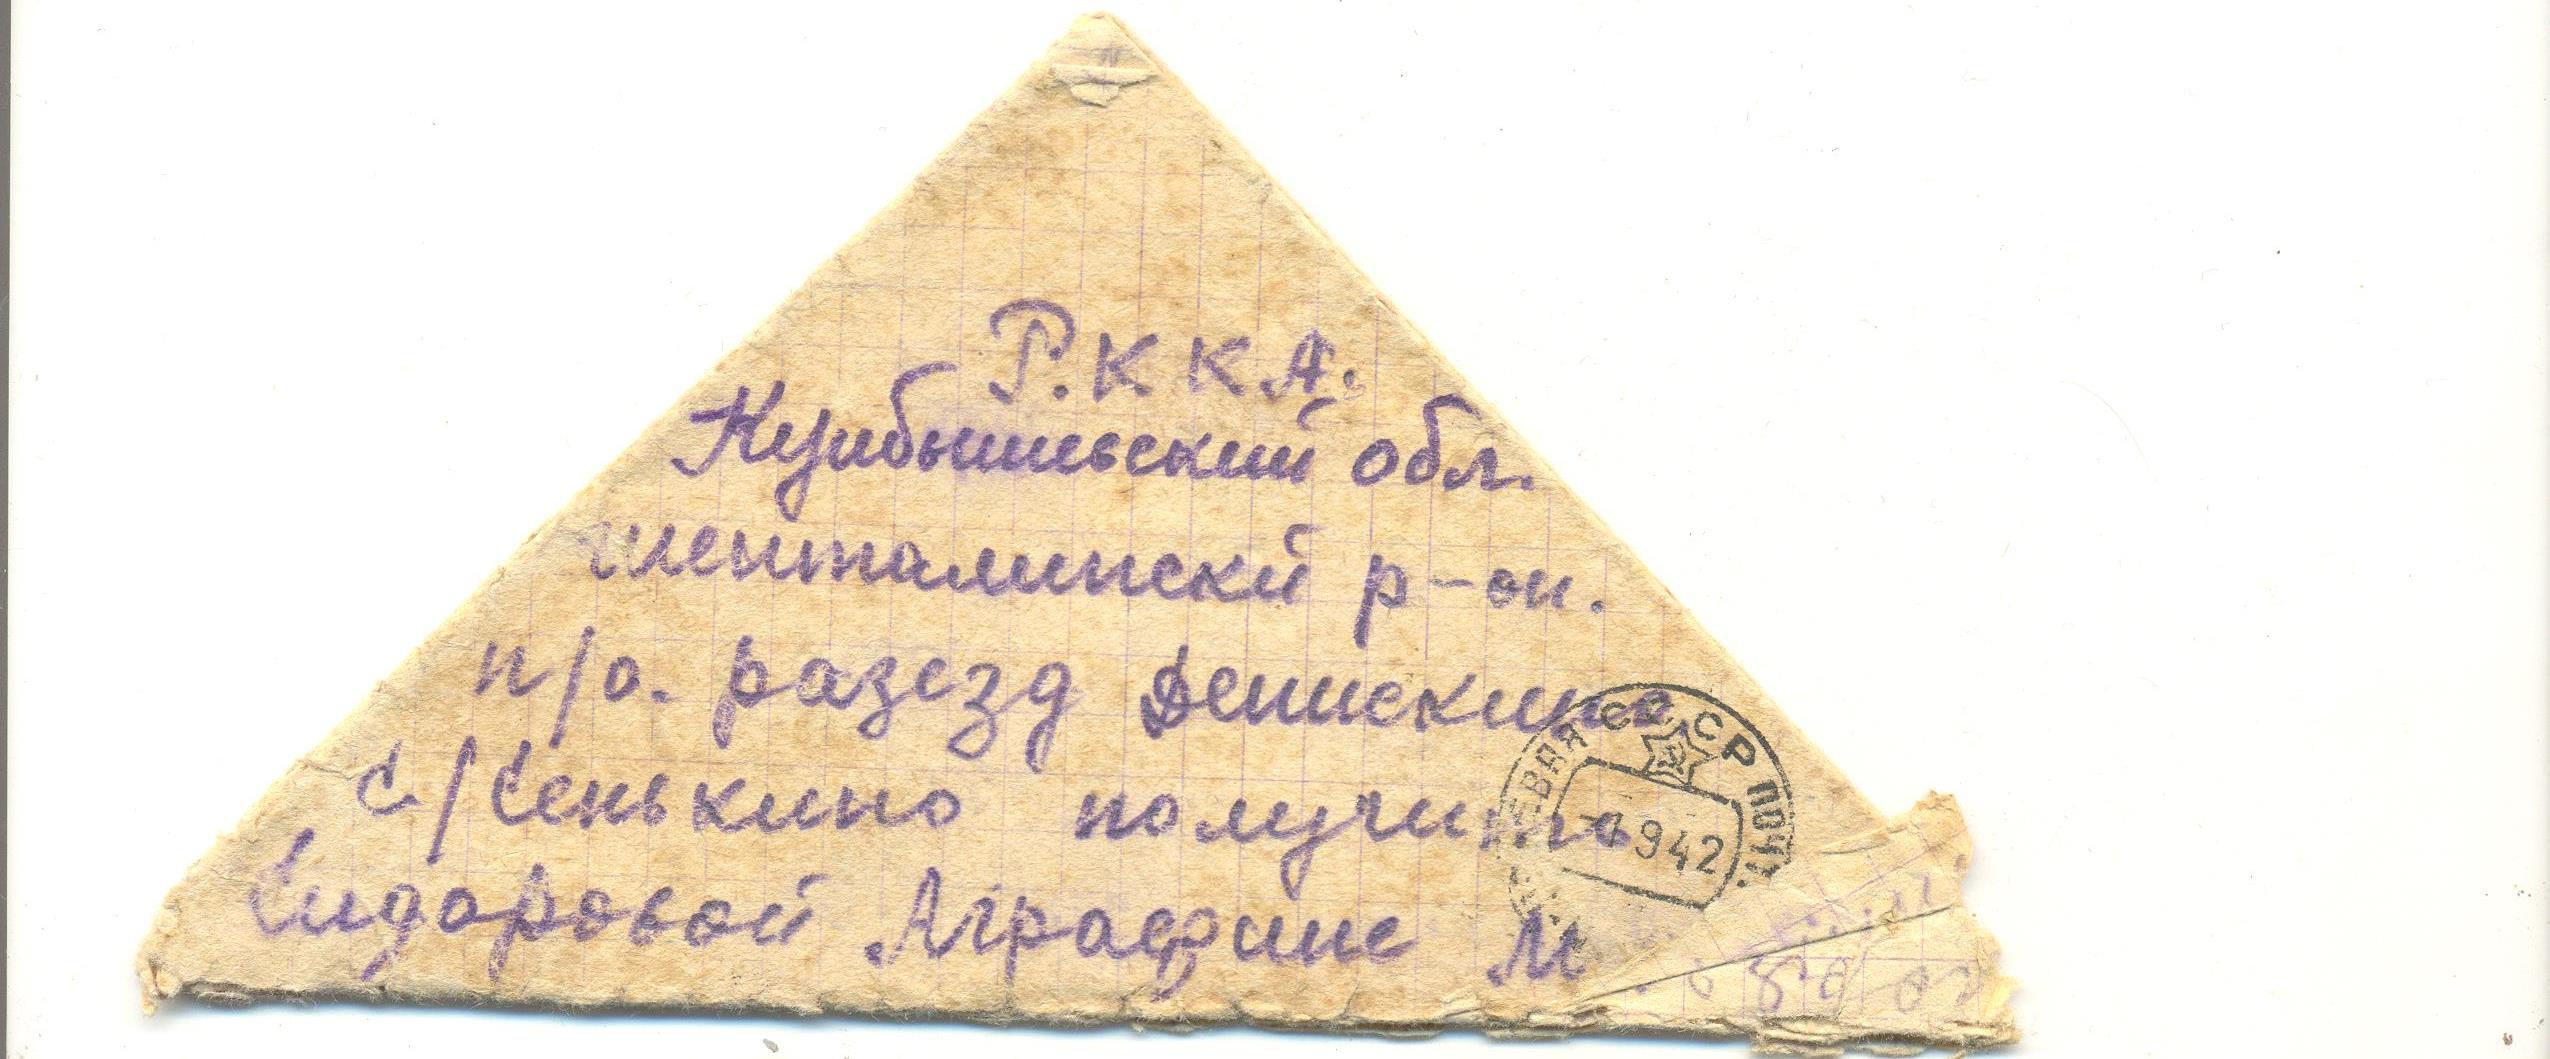 Р.ККА.
Куйбышевский обл.
шенталински р-он.
п/о. разезд Денискино
с/Сенькино получит
Сидоровой Аграфине М
СССР ПОЧТ.
942